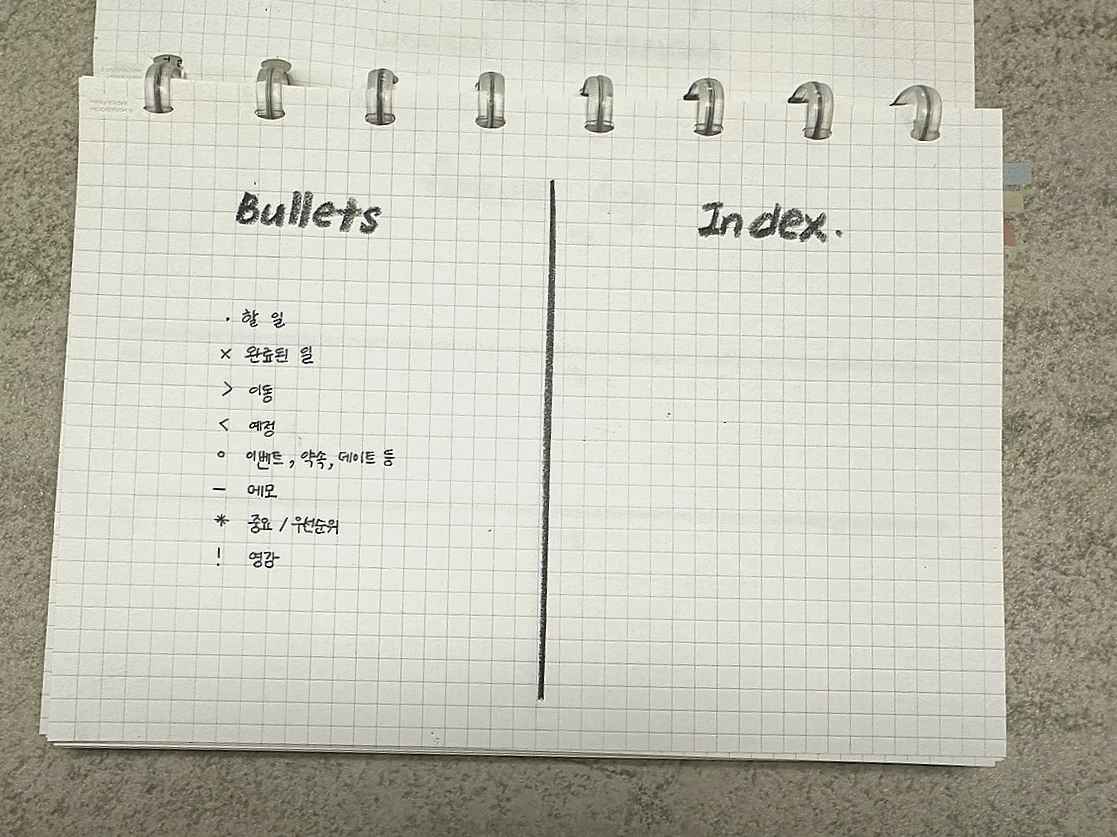 Bullets
· 할 일
× 완료된 일
> 이동
< 예정
○ 이벤트, 약속, 데이트 등
– 메모
* 중요 / 우선순위
! 영감
Index.